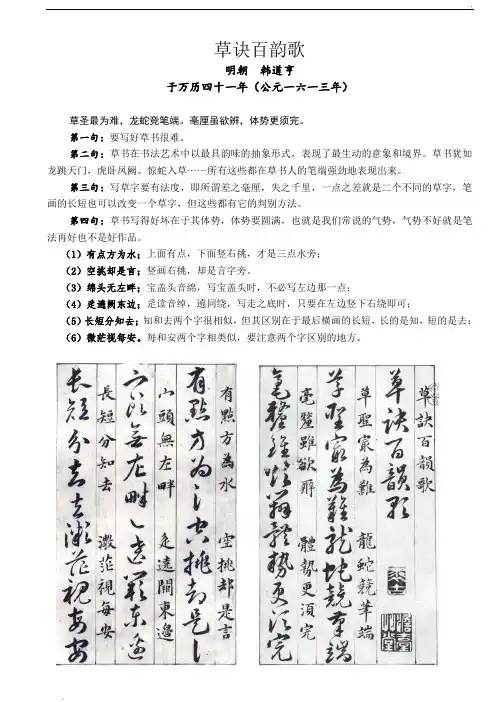 草诀百韵歌
明朝 韩道亨
于万历四十一年（公元一六一三年）
草圣最为难，龙蛇竞笔端。毫厘虽欲辨，体势更须完。
第一句：要写好草书很难。
第二句：草书在书法艺术中以最具韵味的抽象形式，表现了最生动的意象和境界。草书犹如
龙跳天门，虎卧凤阙、惊蛇入草······所有这些都在草书人的笔端强劲地表现出来。
第三句：写草字要有法度，即所谓差之毫厘，失之千里，一点之差就是二个不同的草字，笔
画的长短也可以改变一个草字，但这些都有它的判别方法。
第四句：草书写得好坏在于其体势，体势要圆满，也就是我们常说的气势，气势不好就是笔
法再好也不是好作品。
（1）有点方为水：上面有点，下面竖右挑，才是三点水旁；
（2）空挑却是言：竖画右挑，却是言字旁。
（3）绵头无左畔：宝盖头音绵，写宝盖头时，不必写左边那一点；
（4）辵遶阙东边：辵读音绰，遶同绕，写走之底时，只要在左边竖下右绕即可；
（5）长短分知去：知和去两个字很相似，但其区别在于最后横画的长短，长的是知，短的是去；
（6）微茫视每安。每和安两个字相类似，要注意两个字区别的地方。
草訣百韻歌
草訣百韻歌
草聖最為難 龍蛇競筆端
草聖最為難龍蛇競筆端
毫釐雖欲辨 體勢更須完
毫釐雖欲辨體勢更須完
有點方為水 空挑却是言
有點方為水空挑却是言
宀頭無左畔 辵遶闕東邊
宀頭無左畔辵遶闕東邊
長短分知去 微茫視每安
長短分知去微茫視每安